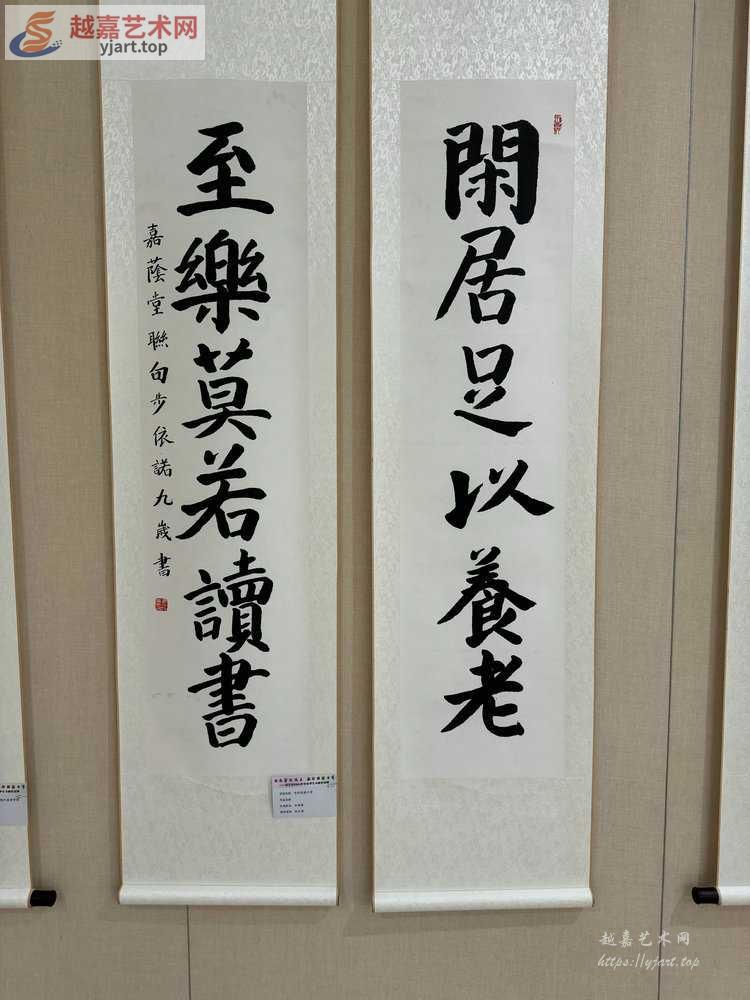 越嘉艺术网
yjart.top
閑居足以養老
至樂莫若讀書
嘉蔭堂聯句步依諾九歲書
越嘉艺术网
https://yjart.top